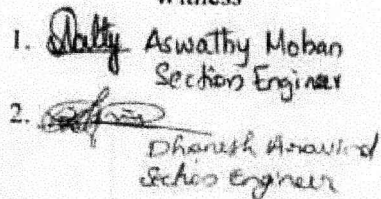 Witness
1. Aswathy Mohan
Section Engineer
2.
Dhanesh Aravind
Section Engineer